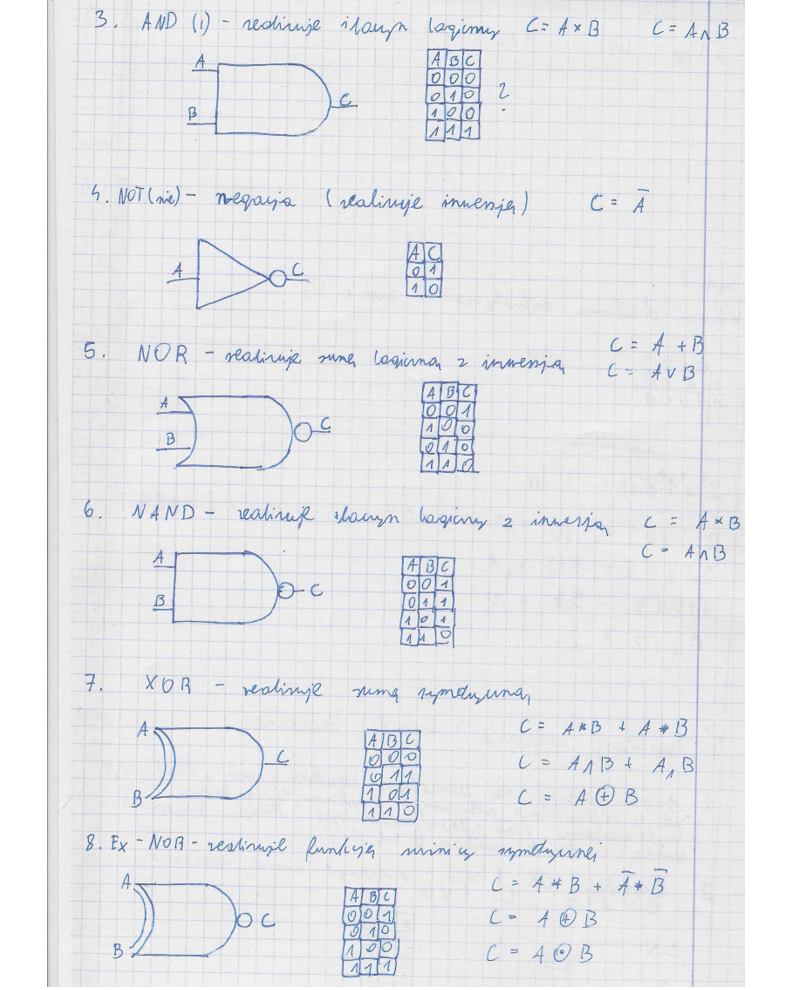 3. AND (i) - realizuje iloczyn logiczny C = A × B C = A ∧ B
A
B
C
A B C
0 0 0
0 1 0
1 0 0
1 1 1
?
4. NOT (nie) - negacja (realizuje inwersję) C = A̅
A
C
A C
0 1
1 0
5. NOR - realizuje sumę logiczną z inwersją C = A + B
C = A ∨ B
A
B
C
A B C
0 0 1
1 0 0
0 1 0
1 1 0
6. NAND - realizuje iloczyn logiczny z inwersją C = A * B
C = A ∧ B
A
B
C
A B C
0 0 1
0 1 1
1 0 1
1 1 0
7. XOR - realizuje sumę symetryczną
C = A * B + A * B
C = A ∧ B + A ∧ B
C = A ⊕ B
A
B
C
A B C
0 0 0
0 1 1
1 0 1
1 1 0
8. Ex-NOR - realizuje funkcję symetrycznej
C = A * B + A̅ * B̅
C = A ⊕ B
C = A ⊙ B
A
B
C
A B C
0 0 1
0 1 0
1 0 0
1 1 1